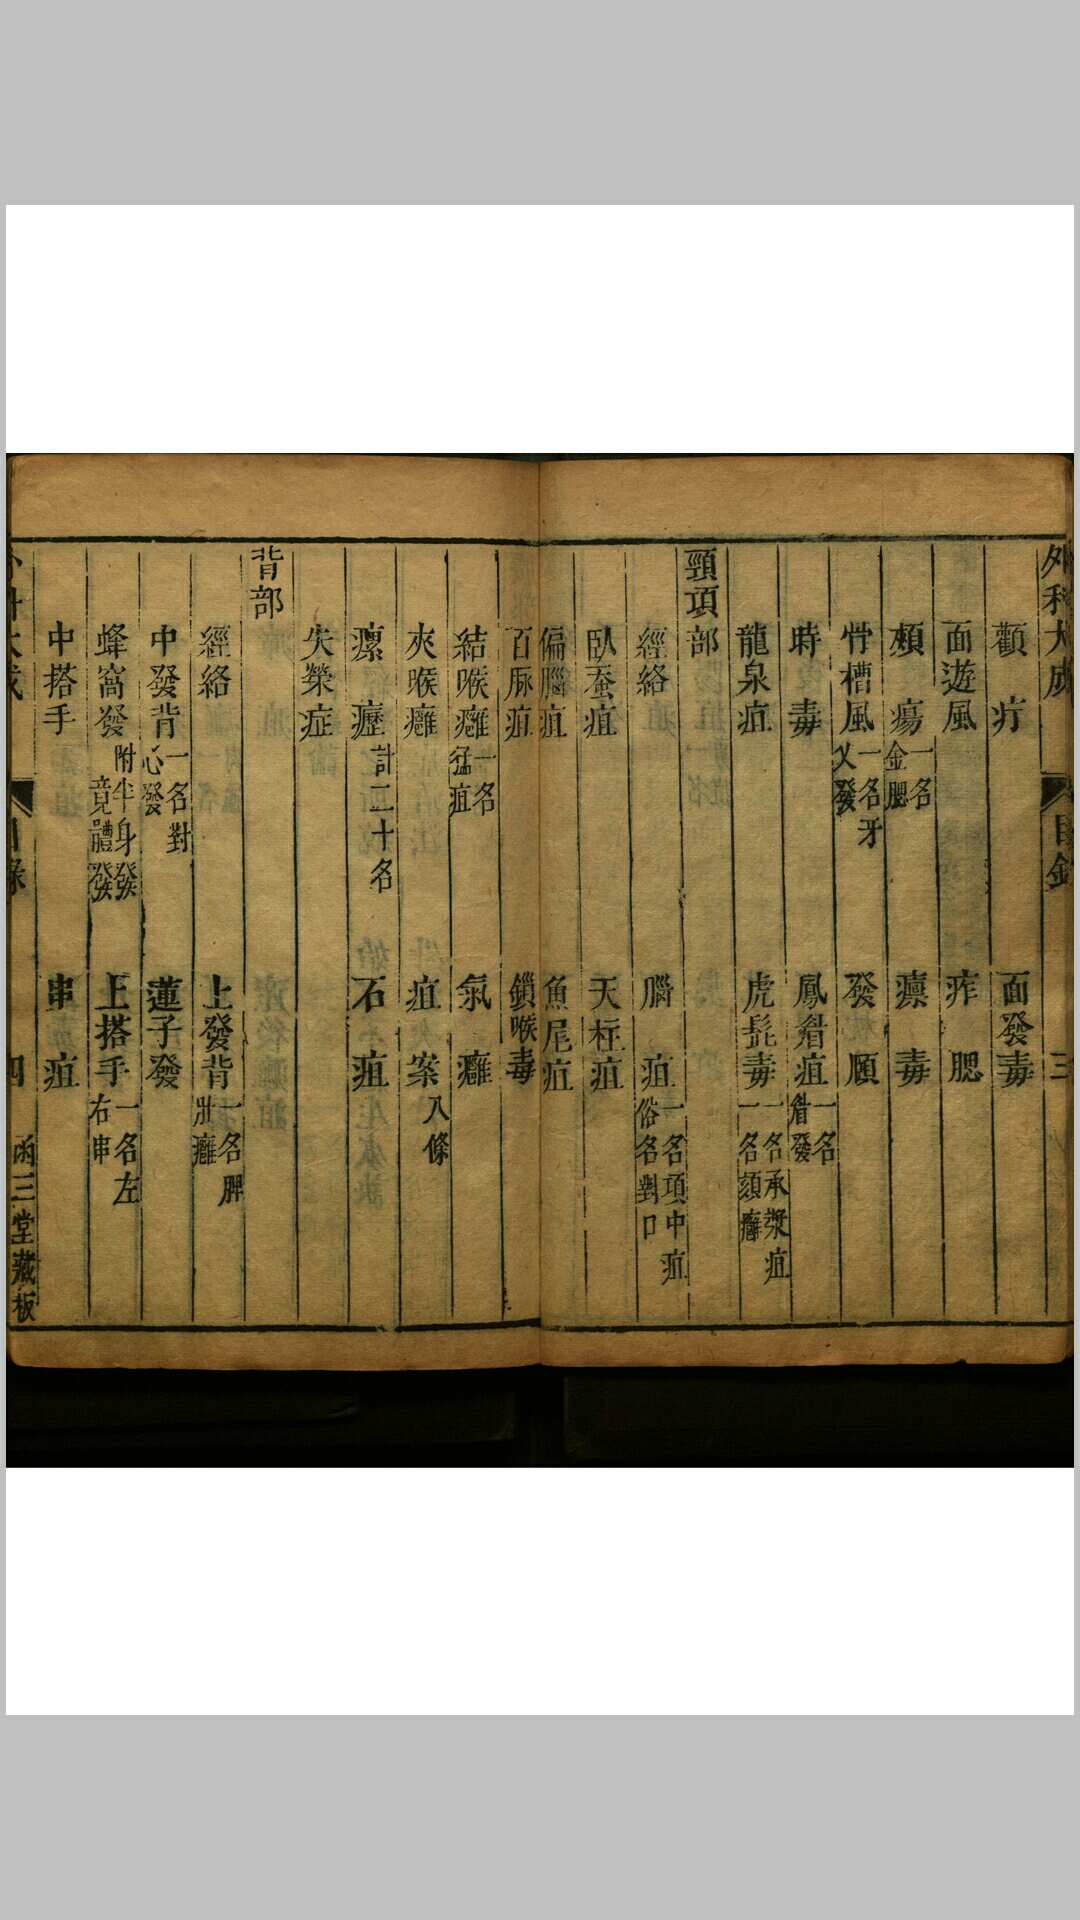 外科大成 目錄 三
顴疔 面發毒
面遊風 痄腮
頰瘍一名金腮 瘭毒
骨槽風一名牙乂發 發頤
時毒 鳳眉疽一名眉發
龍泉疽 虎髭毒一名承漿疽一名頦癰
頸項部
經絡 腦疽一名項中疽俗名對口
臥蚕疽 天柱疽
偏腦疽 魚尾疽
百脉疽 鎖喉毒
結喉癰一名猛疽 氣癰
夾喉癰 疽案八條
瘰癧計二十名 石疽
失榮症
背部
經絡 上發背一名脾壯癰
中發背一名對心發 蓮子發
蜂窩發附半身發竟體發 上搭手一名左右串
中搭手 串疽
外科大成 目錄 四 函三堂藏板